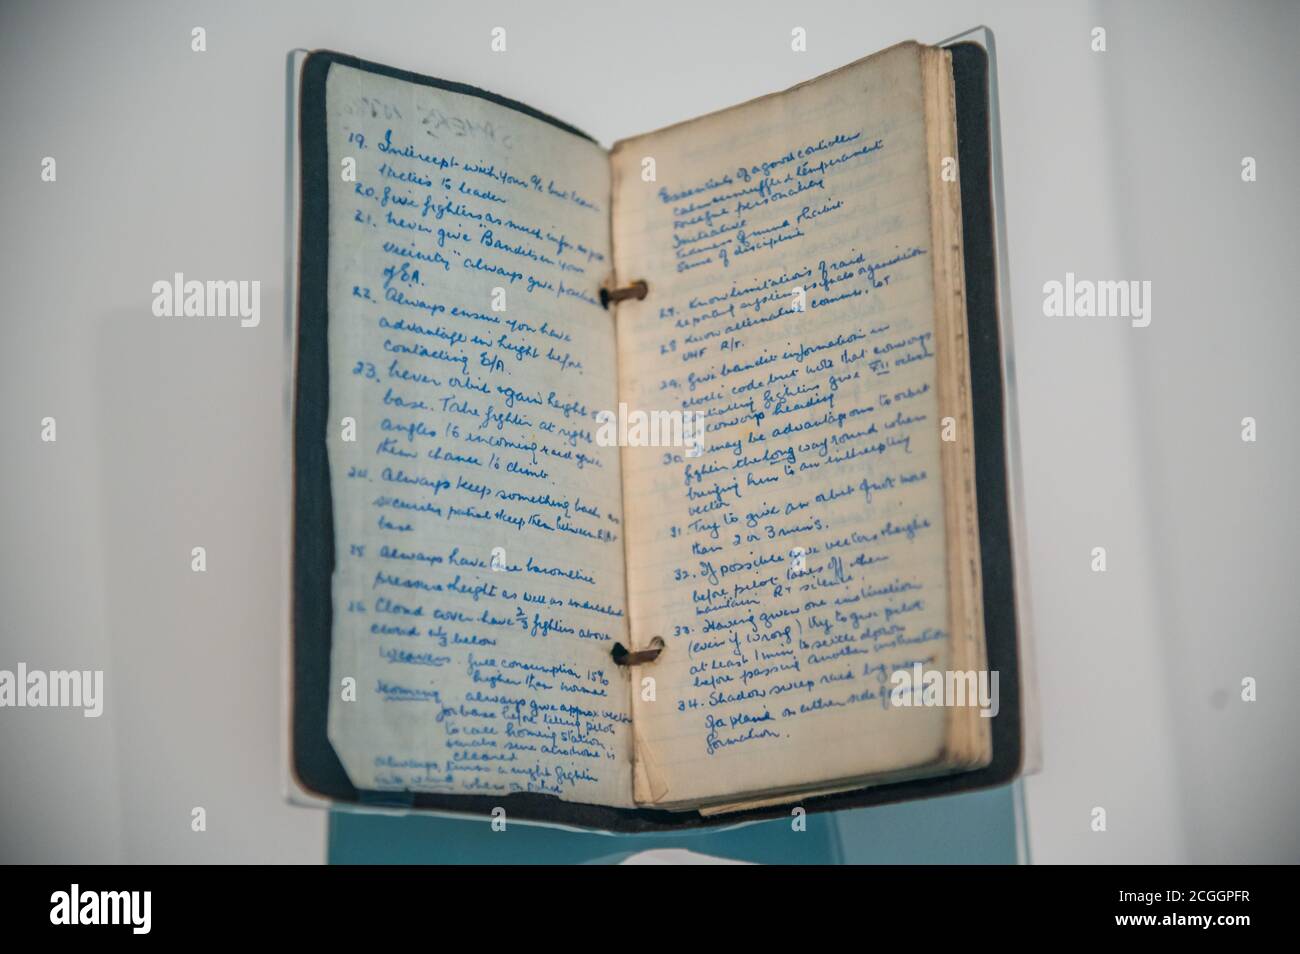 19. Intercept with your a/c but leave
tactics to leader
20. Give fighters as much info. as poss
21. Never give "Bandits in your
vicinity" always give position
of E/A.
22. Always ensure you have
advantage in height before
contacting E/A.
23. Never orbit & gain height over
base. Take fighter at right
angles to incoming raid & give
them chance to climb.
24. Always keep something back as
security patrol & keep them between E/A &
base
25. Always have true barometric
pressure & height as well as indicated
26. Cloud cover have 2/3 fighters above
cloud & 1/3 below
Weavers. fuel consumption 15%
higher than normal
Homing. always give approx vector
for base before telling pilot
to call homing station,
make sure aerodrome is
cleared
always turn a night fighter
into wind when on patrol
Essentials of a good controller
calm & unruffled temperament
Forceful personality
Initiative
Tidiness of mind & habit
Sense of discipline
27. Know limitations of raid
reporting system & sector organisation
28 Know alternative comms. LT
VHF R/T.
29. Give bandit information in
clock code but note that convoys
controlling fighters give XII o'clock
as convoys heading
30. It may be advantageous to orbit
fighter the long way round when
bringing him to an intercepting
vector
31. Try to give an orbit of not more
than 2 or 3 mins.
32. If possible give vectors & height
before pilot takes off then
maintain R.T silence
33. Having given one instruction
(even if wrong) try to give pilot
at least 1 min to settle down
before passing another instruction
34. Shadow sweep raid by means
of a plane on either side of your
formation.
alamy
Image ID: 2CGGPFR
www.alamy.com